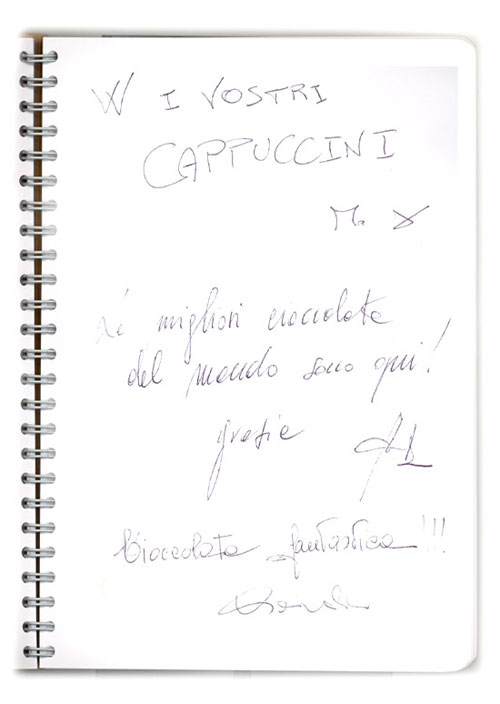 W I VOSTRI
CAPPUCCINI
Mr X
Le migliori cioccolate
del mondo sono qui!
grazie
Cioccolata fantastica!!!